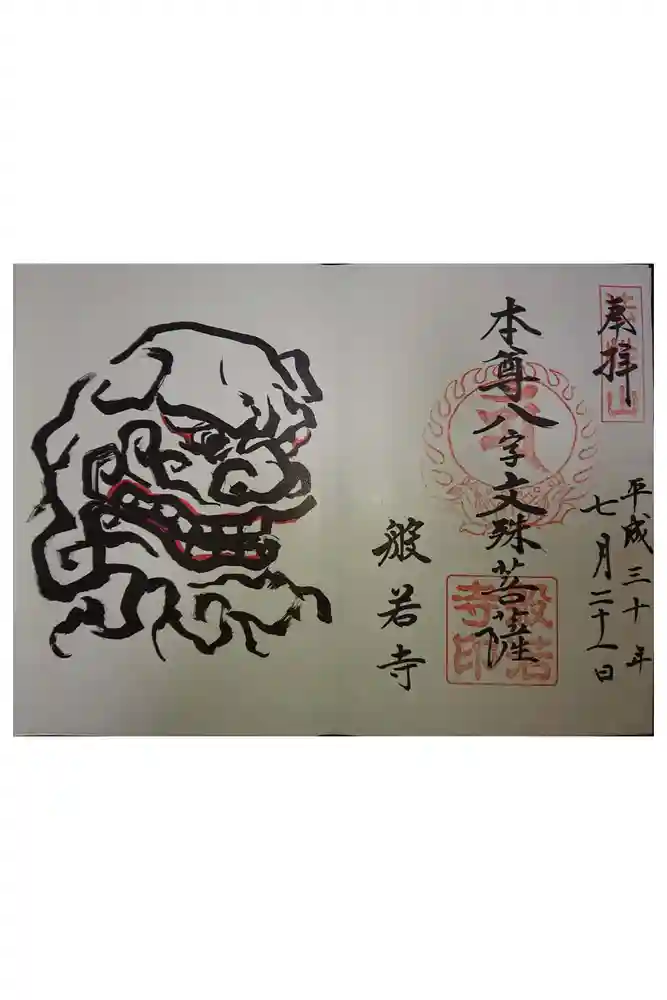 奉拝
平成三十年
七月二十一日
本尊八字文殊菩薩
般若寺
般若寺印